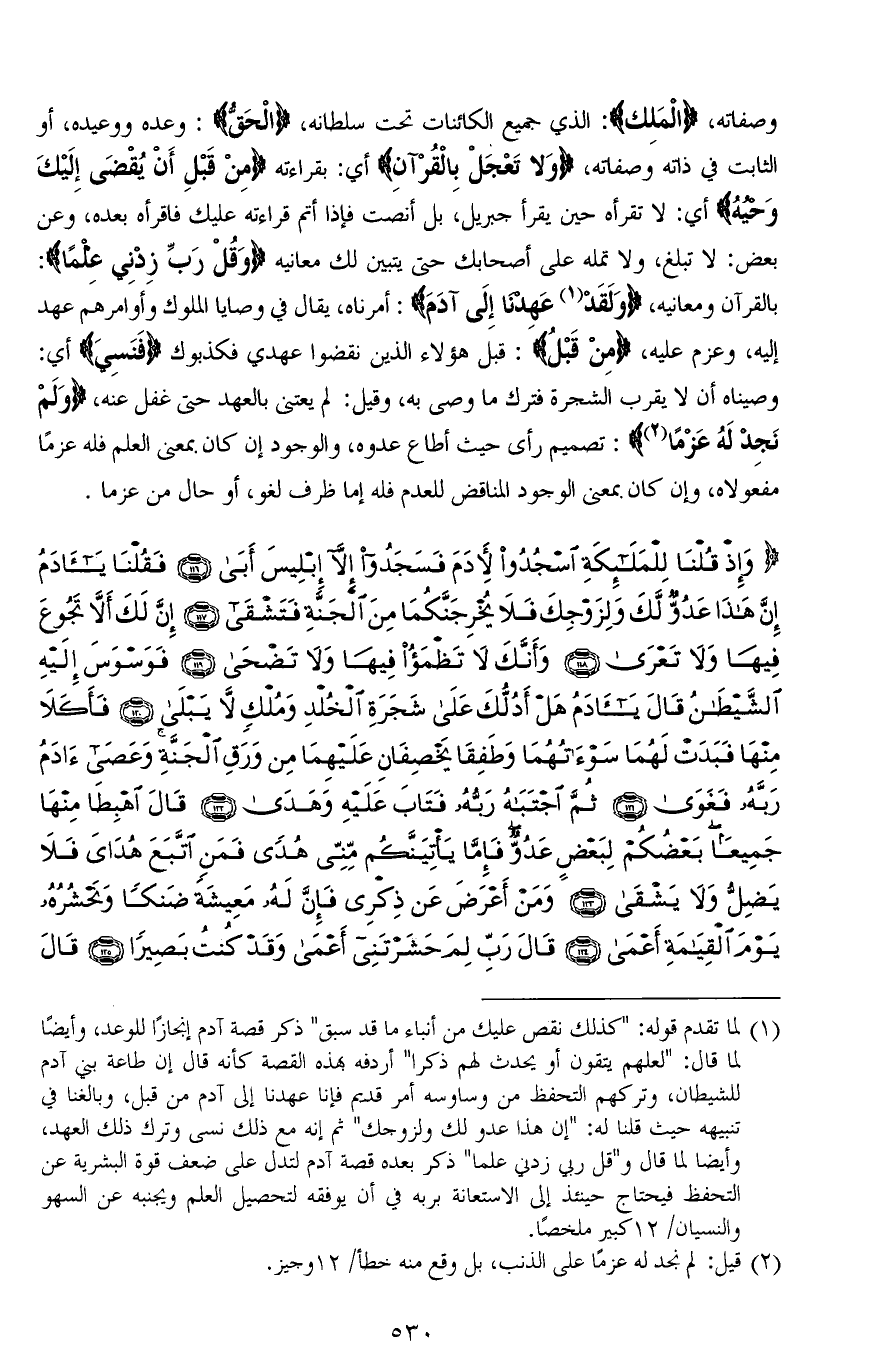 وصفاته، ﴿الْمَلِك﴾: الذي جميع الكائنات تحت سلطانه، ﴿الْحَقُّ﴾ : وعده ووعيده، أو
الثابت في ذاته وصفاته، ﴿وَلا تَعْجَلْ بِالْقُرْآنِ﴾ أي: بقراءته ﴿مِنْ قَبْلِ أَنْ يُقْضَى إِلَيْكَ
وَحْيُهُ﴾ أي: لا تقرأه حين يقرأ جبريل، بل أنصت فإذا أتم قراءته عليك فاقرأه بعده، وعن
بعض: لا تبلغ، ولا تمله على أصحابك حتى يتبين لك معانيه ﴿وَقُلْ رَبِّ زِدْنِي عِلْمًا﴾:
بالقرآن ومعانيه، ﴿وَلَقَدْ(١) عَهِدْنَا إِلَى آدَمَ﴾ : أمرناه، يقال في وصايا الملوك وأوامرهم عهد
إليه، وعزم عليه، ﴿مِنْ قَبْلُ﴾ : قبل هؤلاء الذين نقضوا عهدي فكذبوك ﴿فَنَسِيَ﴾ أي:
وصيناه أن لا يقرب الشجرة فترك ما وصى به، وقيل: لم يعتنى بالعهد حتى غفل عنه، ﴿وَلَمْ
نَجِدْ لَهُ عَزْمًا(٢)﴾ : تصميم رأى حيث أطاع عدوه، والوجود إن كان بمعنى العلم فله عزمًا
مفعولاه، وإن كان بمعنى الوجود المناقض للعدم فله إما ظرف لغو، أو حال من عزما .
۞ وَإِذْ قُلْنَا لِلْمَلَٰٓئِكَةِ ٱسْجُدُوا۟ لِأَدَمَ فَسَجَدُوٓا۟ إِلَّآ إِبْلِيسَ أَبَىٰ ١١٦ فَقُلْنَا يَٰٓـَٔادَمُ
إِنَّ هَٰذَا عَدُوٌّ لَّكَ وَلِزَوْجِكَ فَلَا يُخْرِجَنَّكُمَا مِنَ ٱلْجَنَّةِ فَتَشْقَىٰٓ ١١٧ إِنَّ لَكَ أَلَّا تَجُوعَ
فِيهَا وَلَا تَعْرَىٰ ١١٨ وَأَنَّكَ لَا تَظْمَؤُا۟ فِيهَا وَلَا تَضْحَىٰ ١١٩ فَوَسْوَسَ إِلَيْهِ
ٱلشَّيْطَٰنُ قَالَ يَٰٓـَٔادَمُ هَلْ أَدُلُّكَ عَلَىٰ شَجَرَةِ ٱلْخُلْدِ وَمُلْكٍ لَّا يَبْلَىٰ ١٢٠ فَأَكَلَا
مِنْهَا فَبَدَتْ لَهُمَا سَوْءَٰتُهُمَا وَطَفِقَا يَخْصِفَانِ عَلَيْهِمَا مِن وَرَقِ ٱلْجَنَّةِ ۚ وَعَصَىٰٓ ءَادَمُ
رَبَّهُۥ فَغَوَىٰ ١٢١ ثُمَّ ٱجْتَبَٰهُ رَبُّهُۥ فَتَابَ عَلَيْهِ وَهَدَىٰ ١٢٢ قَالَ ٱهْبِطَا مِنْهَا
جَمِيعًۢا ۖ بَعْضُكُمْ لِبَعْضٍ عَدُوٌّ ۖ فَإِمَّا يَأْتِيَنَّكُم مِّنِّى هُدًى فَمَنِ ٱتَّبَعَ هُدَاىَ فَلَا
يَضِلُّ وَلَا يَشْقَىٰ ١٢٣ وَمَنْ أَعْرَضَ عَن ذِكْرِى فَإِنَّ لَهُۥ مَعِيشَةً ضَنكًا وَنَحْشُرُهُۥ
يَوْمَ ٱلْقِيَٰمَةِ أَعْمَىٰ ١٢٤ قَالَ رَبِّ لِمَ حَشَرْتَنِىٓ أَعْمَىٰ وَقَدْ كُنتُ بَصِيرًا ١٢٥ قَالَ
(١) لما تقدم قوله: "كذلك نقص عليك من أنباء ما قد سبق" ذكر قصة آدم إنجازًا للوعد، وأيضًا
لما قال: "لعلهم يتقون أو يحدث لهم ذكرا" أردفه بهذه القصة كأنه قال إن طاعة بني آدم
للشيطان، وتركهم التحفظ من وساوسه أمر قديم فإنا عهدنا إلى آدم من قبل، وبالغنا في
تنبيهه حيث قلنا له: "إن هذا عدو لك ولزوجك" ثم إنه مع ذلك نسى وترك ذلك العهد،
وأيضا لما قال و"قل ربي زدني علما" ذكر بعده قصة آدم لتدل على ضعف قوة البشرية عن
التحفظ فيحتاج حينئذ إلى الاستعانة بربه في أن يوفقه لتحصيل العلم ويجنبه عن السهو
والنسيان/ ١٢كبير ملخصًا.
(٢) قيل: لم نجد له عزمًا على الذنب، بل وقع منه خطأ/ ١٢وجيز.
٥٣٠